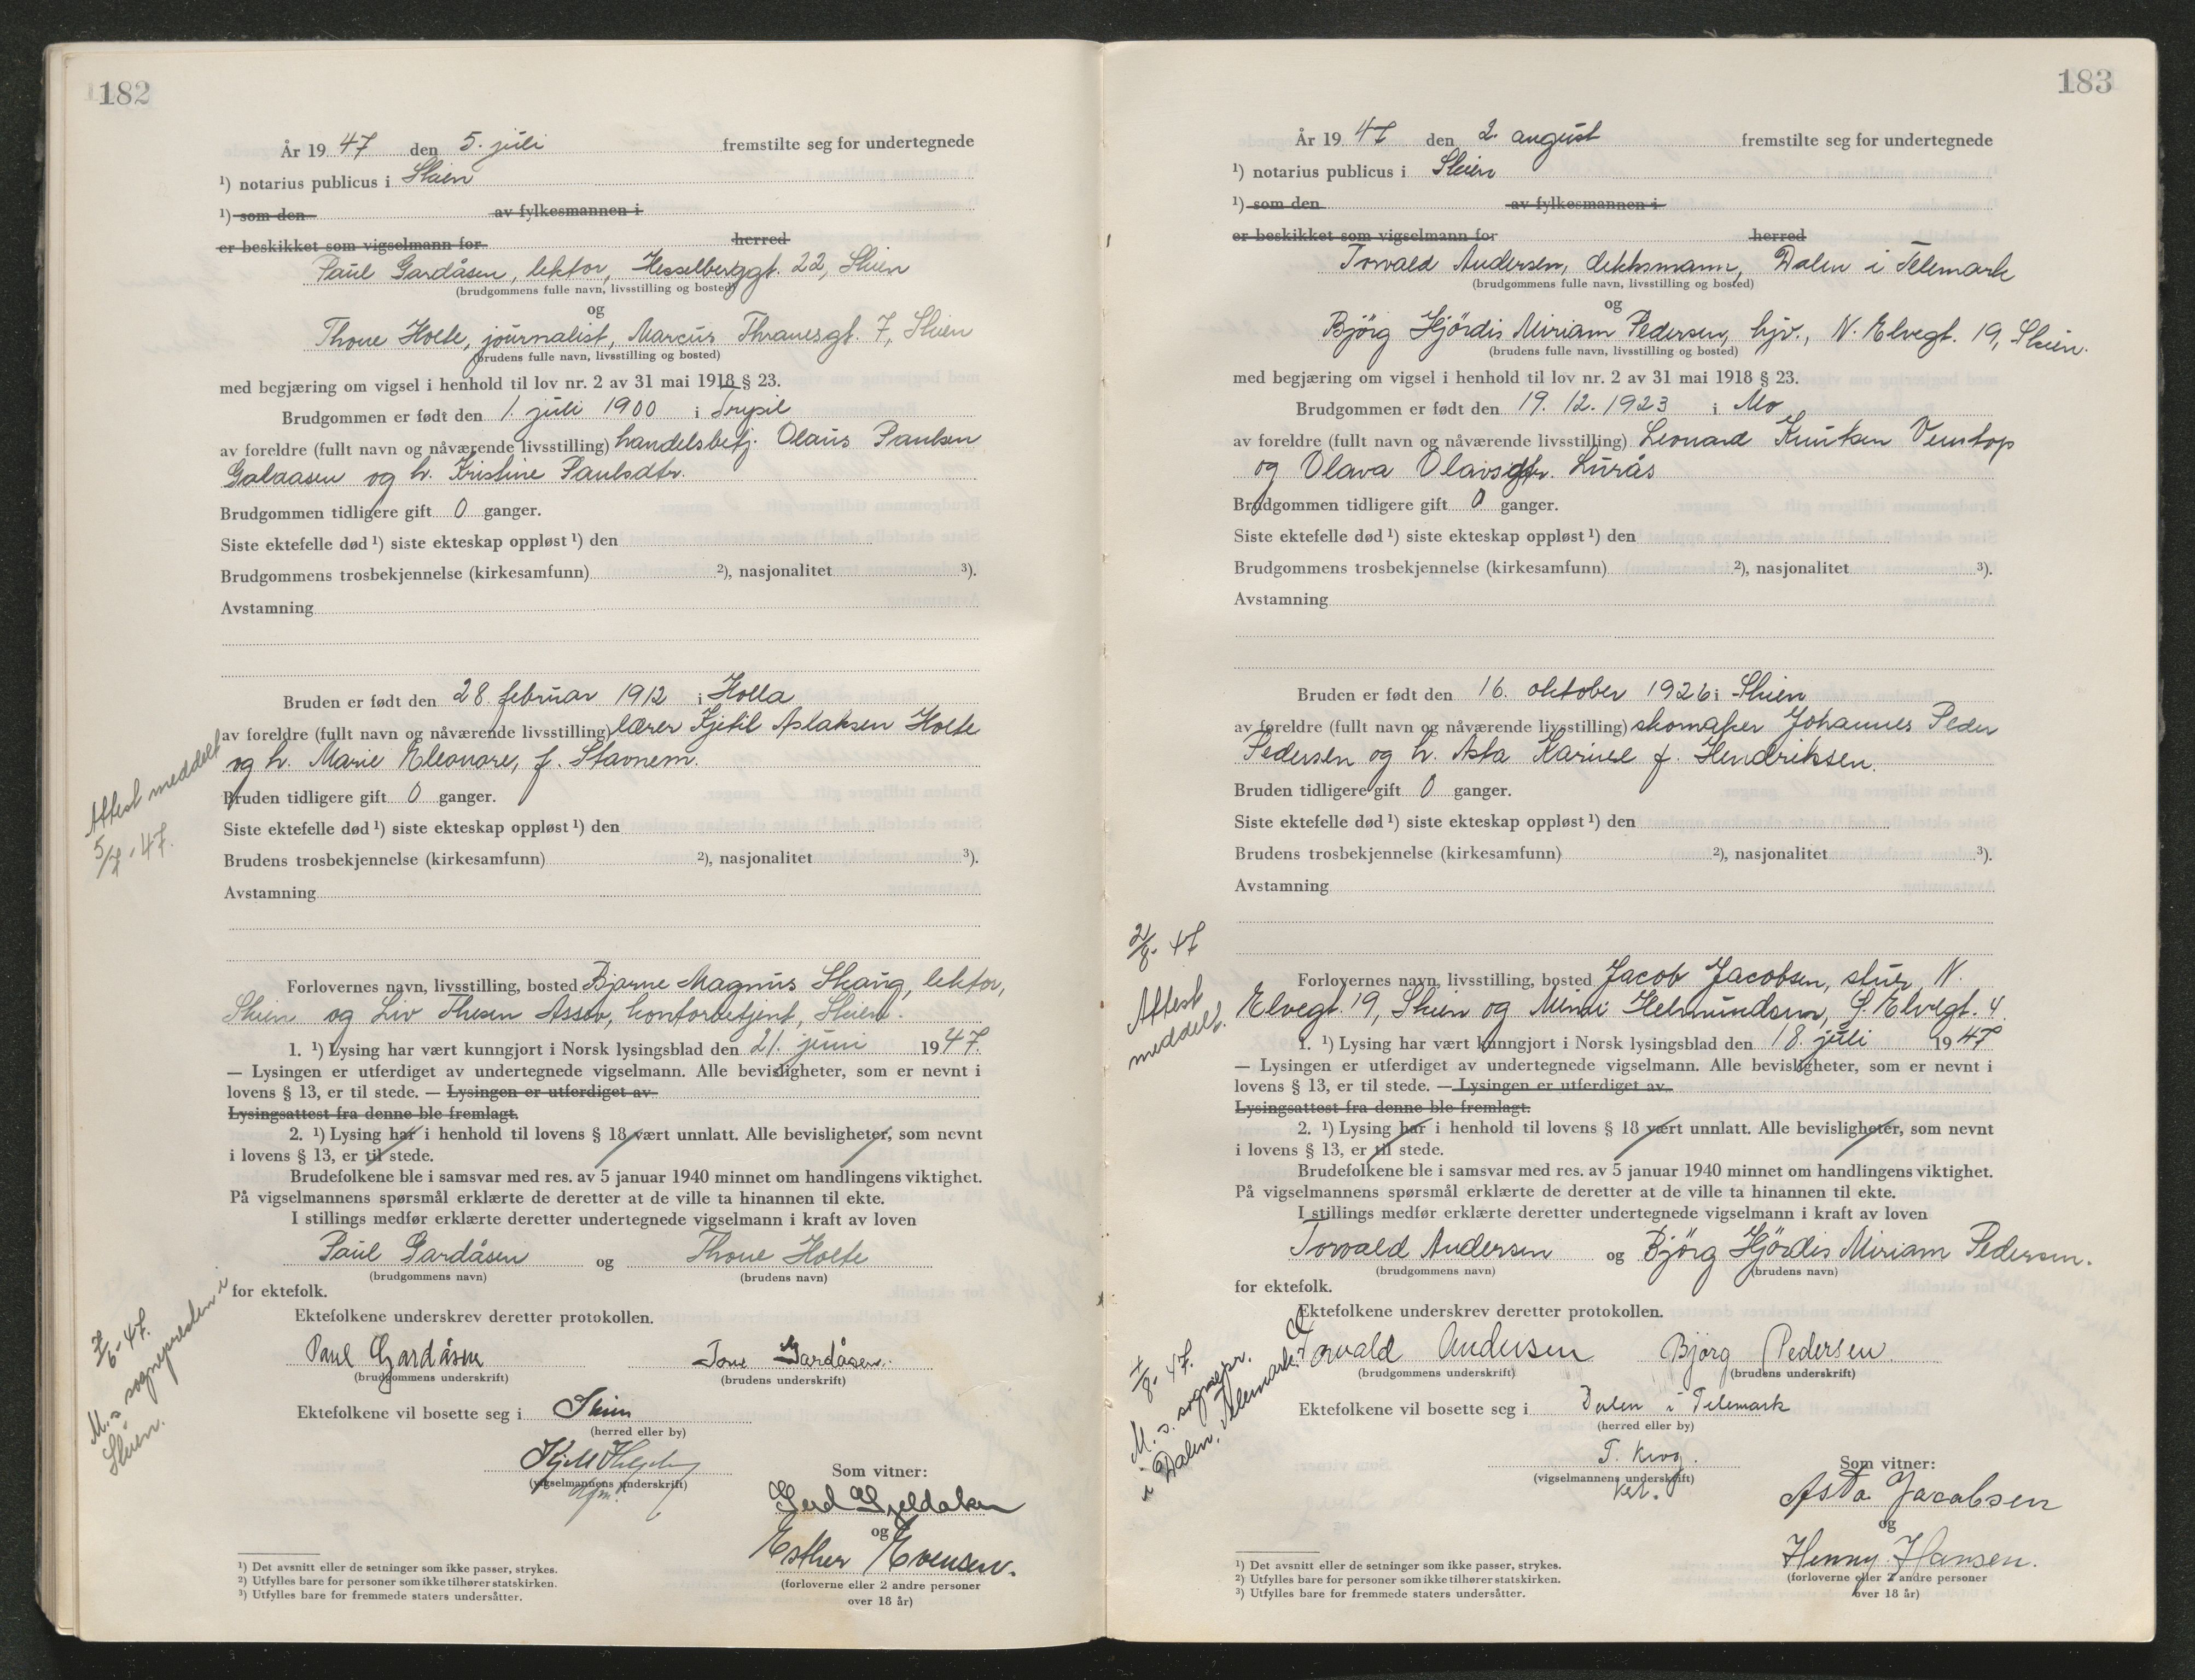 182
År 1947 den 5. juli fremstilte seg for undertegnede
¹) notarius publicus i Skien
¹) som den av fylkesmannen i
er beskikket som vigselmann for herred
Paul Gardåsen, lektor, Hesselberggt. 22, Skien
(brudgommens fulle navn, livsstilling og bosted)
og
Thone Holte, journalist, Marcus Thranesgt. 7, Skien
(brudens fulle navn, livsstilling og bosted)
med begjæring om vigsel i henhold til lov nr. 2 av 31 mai 1918 § 23.
Brudgommen er født den 1. juli 1900 i Trysil
av foreldre (fullt navn og nåværende livsstilling) handelsbetj. Olaus Paulsen
Galaasen og h. Kristine Paulsdtr.
Brudgommen tidligere gift 0 ganger.
Siste ektefelle død ¹) siste ekteskap oppløst ¹) den
Brudgommens trosbekjennelse (kirkesamfunn) ²), nasjonalitet ³).
Avstamning
Bruden er født den 28. februar 1912 i Holla
av foreldre (fullt navn og nåværende livsstilling) lærer Kjetil Aslaksen Holte
og h. Marie Eleonore, f. Stavnem.
Bruden tidligere gift 0 ganger.
Siste ektefelle død ¹) siste ekteskap oppløst ¹) den
Brudens trosbekjennelse (kirkesamfunn) ²), nasjonalitet ³).
Avstamning
Attest meddelt
5/7-47.
Forlovernes navn, livsstilling, bosted Bjarne Magnus Skaug, lektor,
Skien og Liv Thesen Assev, kontorbetjent, Skien.
1. ¹) Lysing har vært kunngjort i Norsk lysingsblad den 21. juni 1947.
— Lysingen er utferdiget av undertegnede vigselmann. Alle bevisligheter, som er nevnt i
lovens § 13, er til stede. — Lysingen er utferdiget av
Lysingsattest fra denne ble fremlagt.
2. ¹) Lysing har i henhold til lovens § 18 vært unnlatt. Alle bevisligheter, som nevnt
i lovens § 13, er til stede.
Brudefolkene ble i samsvar med res. av 5 januar 1940 minnet om handlingens viktighet.
På vigselmannens spørsmål erklærte de deretter at de ville ta hinannen til ekte.
I stillings medfør erklærte deretter undertegnede vigselmann i kraft av loven
Paul Gardåsen og Thone Holte
(brudgommens navn) (brudens navn)
for ektefolk.
Ektefolkene underskrev deretter protokollen.
Paul Gardåsen Tone Gardåsen.
(brudgommens underskrift) (brudens underskrift)
Ektefolkene vil bosette seg i Skien
(herred eller by)
M. s. sognepresten i
Skien.
(vigselmannens underskrift)
Som vitner:
Gerd Gjeldaker
og
Esther Evensen.
(forloverne eller 2 andre personer
over 18 år)
¹) Det avsnitt eller de setninger som ikke passer, strykes.
²) Utfylles bare for personer som ikke tilhører statskirken.
³) Utfylles bare for fremmede staters undersåtter.
183
År 1947 den 2. august fremstilte seg for undertegnede
¹) notarius publicus i Skien
¹) som den av fylkesmannen i
er beskikket som vigselmann for herred
Torvald Andersen, dekksmann, Dalen i Telemark
(brudgommens fulle navn, livsstilling og bosted)
og
Björg Hjördis Miriam Pedersen, hjv., N. Elvegt. 19, Skien.
(brudens fulle navn, livsstilling og bosted)
med begjæring om vigsel i henhold til lov nr. 2 av 31 mai 1918 § 23.
Brudgommen er født den 19. 12. 1923 i Mo
av foreldre (fullt navn og nåværende livsstilling) Leonard Knutsen Venstop
og Olava Olavsdtr. Lurås
Brudgommen tidligere gift 0 ganger.
Siste ektefelle død ¹) siste ekteskap oppløst ¹) den
Brudgommens trosbekjennelse (kirkesamfunn) ²), nasjonalitet ³).
Avstamning
Bruden er født den 16. oktober 1926 i Skien
av foreldre (fullt navn og nåværende livsstilling) skomaker Johannes Peder
Pedersen og h. Asta Karinel f. Hendriksen.
Bruden tidligere gift 0 ganger.
Siste ektefelle død ¹) siste ekteskap oppløst ¹) den
Brudens trosbekjennelse (kirkesamfunn) ²), nasjonalitet ³).
Avstamning
2/8-47
Attest
meddelt.
Forlovernes navn, livsstilling, bosted Jacob Jacobsen, stuer, N.
Elvegt. 19, Skien og Minni Helmundsen, S. Elvegt. 4.
1. ¹) Lysing har vært kunngjort i Norsk lysingsblad den 18. juli 1947
— Lysingen er utferdiget av undertegnede vigselmann. Alle bevisligheter, som er nevnt i
lovens § 13, er til stede. — Lysingen er utferdiget av
Lysingsattest fra denne ble fremlagt.
2. ¹) Lysing har i henhold til lovens § 18 vært unnlatt. Alle bevisligheter, som nevnt
i lovens § 13, er til stede.
Brudefolkene ble i samsvar med res. av 5 januar 1940 minnet om handlingens viktighet.
På vigselmannens spørsmål erklærte de deretter at de ville ta hinannen til ekte.
I stillings medfør erklærte deretter undertegnede vigselmann i kraft av loven
Torvald Andersen og Bjørg Hjördis Miriam Pedersen.
(brudgommens navn) (brudens navn)
for ektefolk.
Ektefolkene underskrev deretter protokollen.
Torvald Andersen Bjørg Pedersen.
(brudgommens underskrift) (brudens underskrift)
Ektefolkene vil bosette seg i Dalen i Telemark
(herred eller by)
M. s. sognepr.
i Dalen, Telemark.
T. Krog.
(vigselmannens underskrift)
Som vitner:
Asta Jacobsen
og
Henny Hansen.
(forloverne eller 2 andre personer
over 18 år)
¹) Det avsnitt eller de setninger som ikke passer, strykes.
²) Utfylles bare for personer som ikke tilhører statskirken.
³) Utfylles bare for fremmede staters undersåtter.